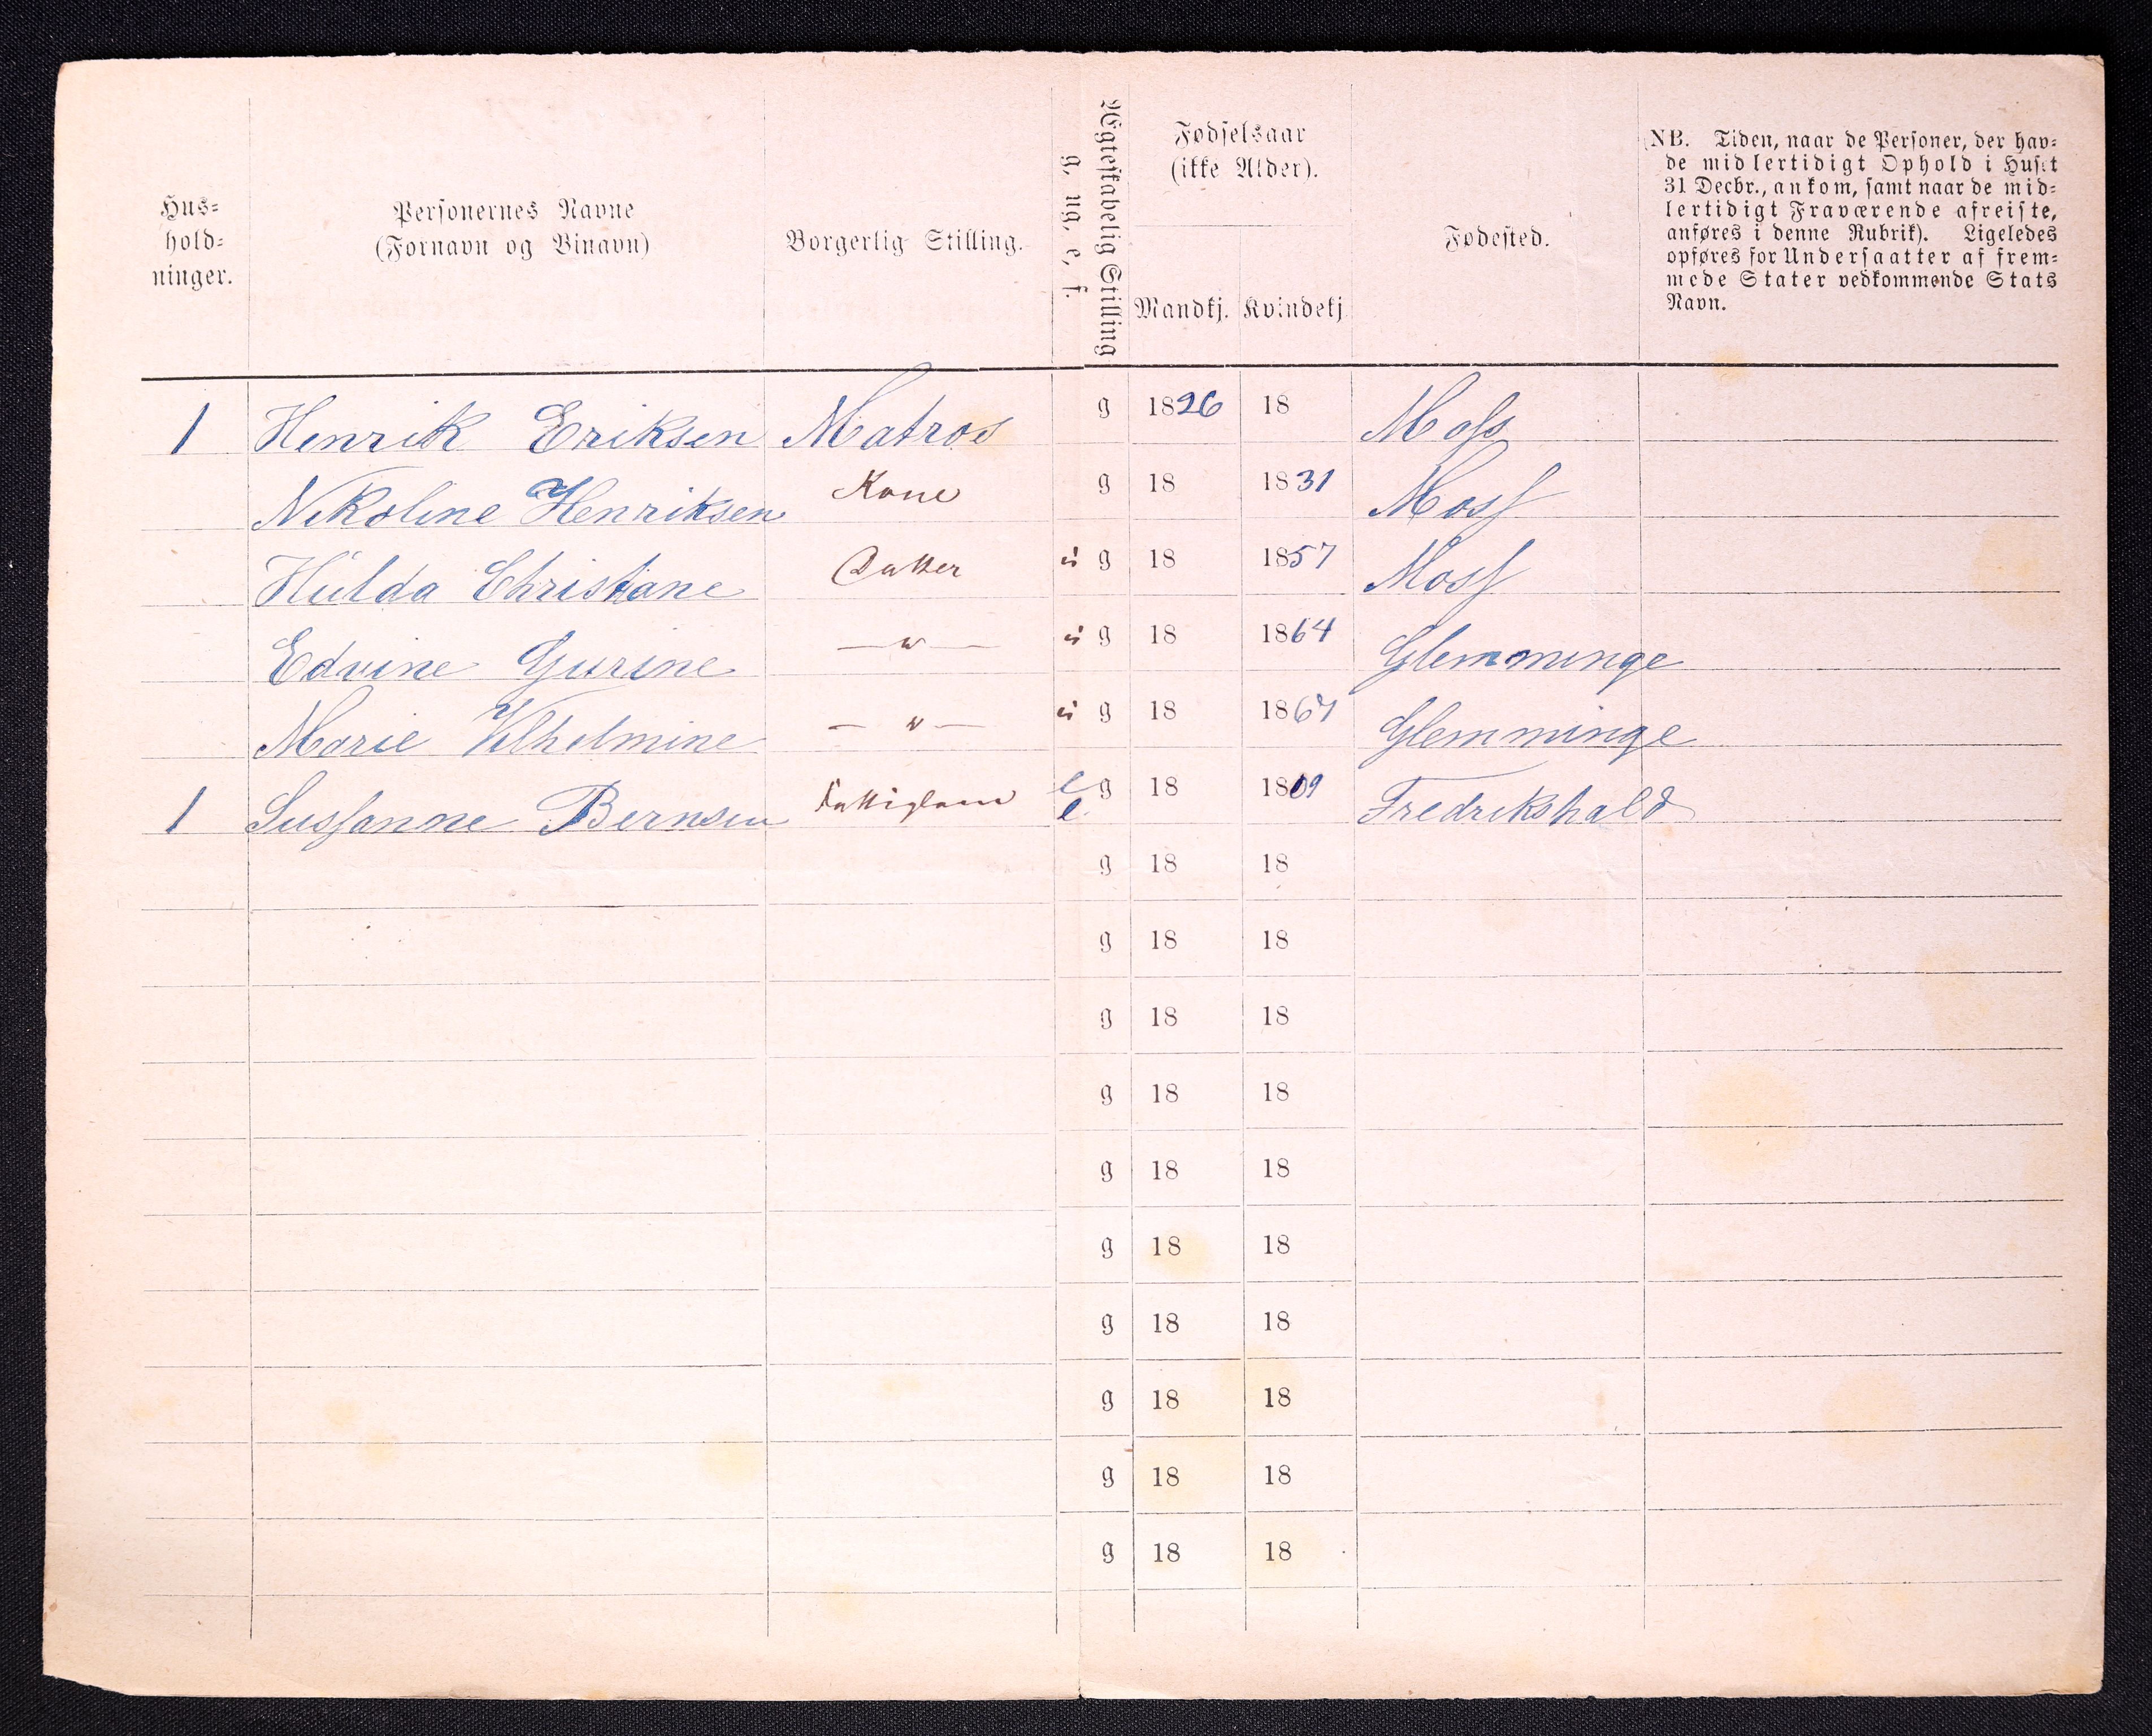 Hus=
hold=
ninger.
Personernes Navne
(Fornavn og Binavn)
Borgerlig Stilling.
Ægteskabelig Stilling
g, ug, e, f.
Fødselsaar
(ikke Alder).
Mandkj. Kvindekj
Fødested.
(NB. Tiden, naar de Personer, der hav=
de midlertidigt Ophold i Huset
31 Decbr., ankom, samt naar de mid=
lertidigt Fraværende afreiste,
anføres i denne Rubrik). Ligeledes
opføres for Undersaatter af frem=
mede Stater vedkommende Stats
Navn.
1 Henrik Eriksen Matros g 1826 18 Moss
Nikoline Henriksen Kone g 18 1831 Moss
Hulda Christiane Datter u g 18 1857 Moss
Edvine Gurine — " — u g 18 1864 Glemminge
Marie Vilhelmine — " — u g 18 1867 Glemminge
1 Sussanne Bernsen Fattiglem e g 18 1809 Fredrikshald
e
g 18 18
g 18 18
g 18 18
g 18 18
g 18 18
g 18 18
g 18 18
g 18 18
g 18 18
g 18 18